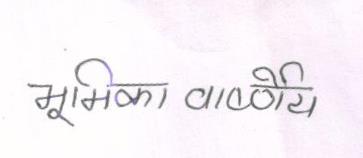 भूमिका वार्ष्णेय